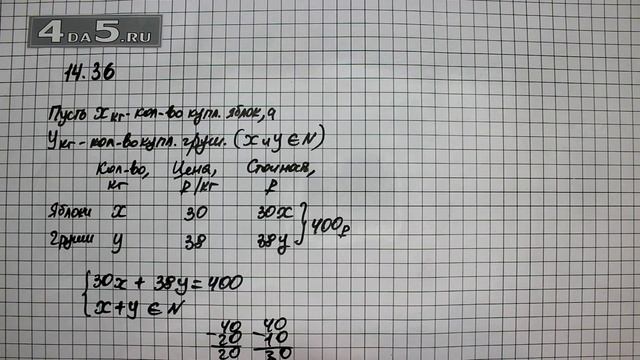 4DA5.RU
14.36
Пусть x кг - кол-во купл. яблок, а
y кг - кол-во купл. груш. (x и y ∈ N)
Кол-во, кг Цена, р/кг Стоимость, р
Яблоки x 30 30x
Груши y 38 38y } 400 р
{ 30x + 38y = 400
x + y ∈ N
- 40 - 40
20 10
20 30